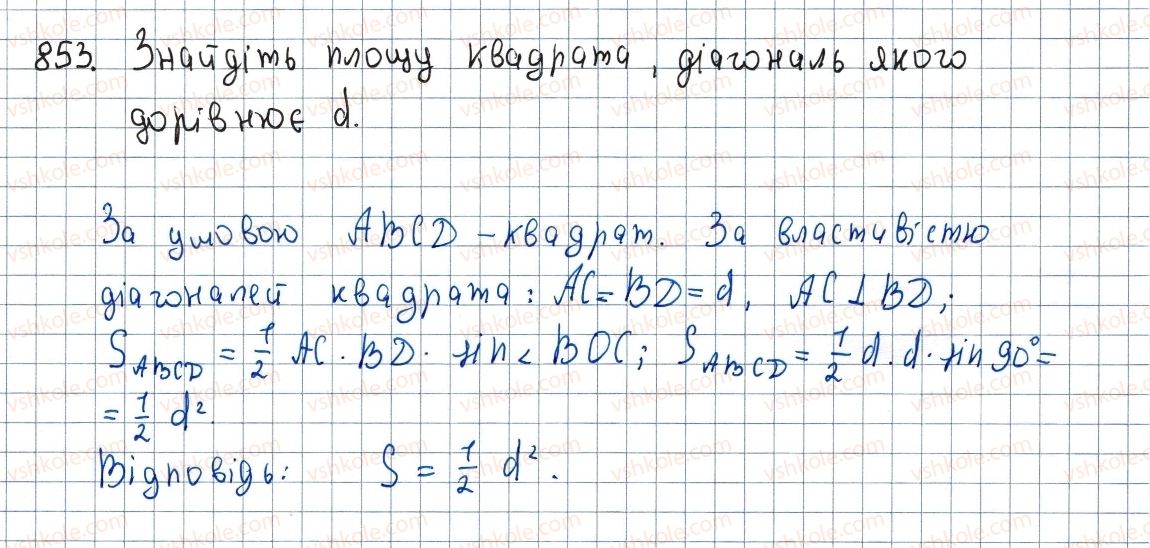 853. Знайдіть площу квадрата, діагональ якого
дорівнює d.
За умовою ABCD – квадрат. За властивістю
діагоналей квадрата: AC = BD = d, AC ⊥ BD;
S_ABCD = 1/2 AC · BD · sin < BOC; S_ABCD = 1/2 d · d · sin 90° =
= 1/2 d².
Відповідь: S = 1/2 d².